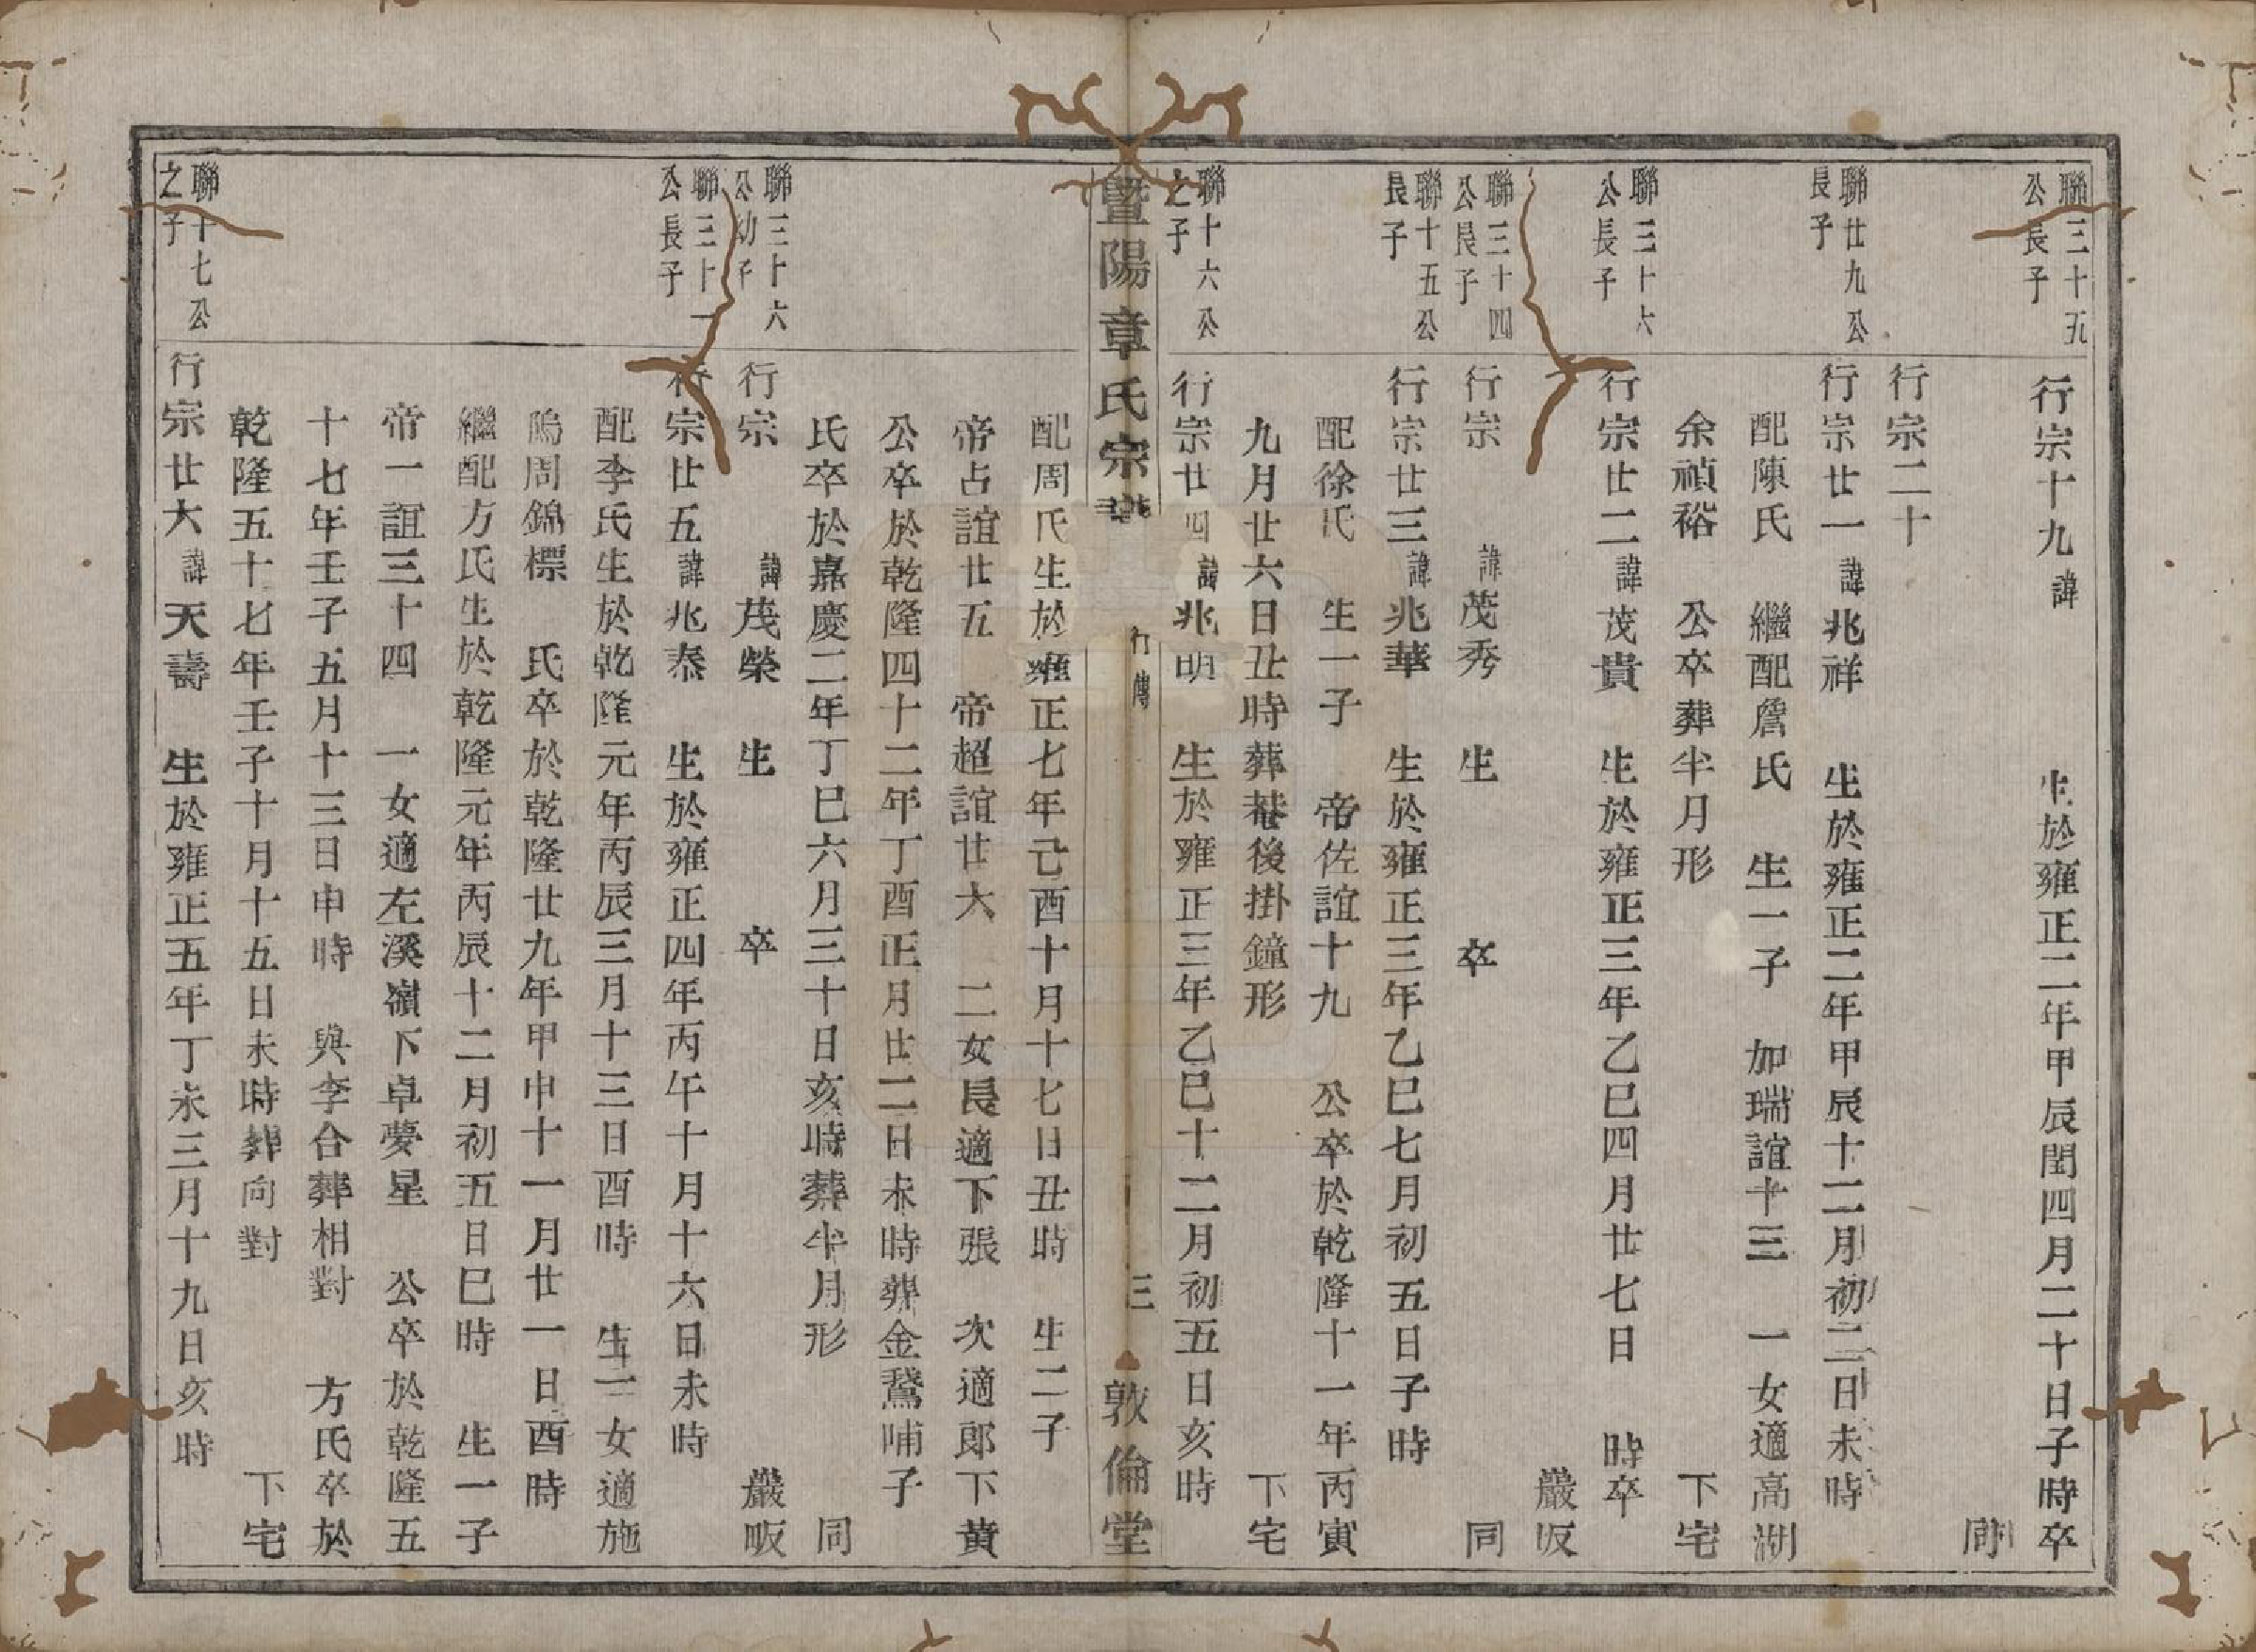 聯三十五
公長子
行宗十九 諱 生於雍正二年甲辰閏四月二十日子時卒
同
行宗二十
聯廿九公
長子
行宗廿一 諱兆祥 生於雍正二年甲辰十二月初二日未時
配陳氏 繼配詹氏 生一子 加瑞誼十三 一女適高湖
余禎裕 公卒葬半月形 下宅
聯三十六
公長子
行宗廿二 諱茂貴 生於雍正三年乙巳四月廿七日 時卒
嚴畈
聯三十四
公長子
行宗 諱茂秀 生 卒 同
聯十五公
長子
行宗廿三 諱兆華 生於雍正三年乙巳七月初五日子時
配徐氏 生一子 帝佐誼十九 公卒於乾隆十一年丙寅
九月廿六日丑時葬菴後掛鐘形 下宅
聯十六公
之子
行宗廿四 諱兆明 生於雍正三年乙巳十二月初五日亥時
暨陽章氏宗譜 行傳 三 敦倫堂
配周氏生於雍正七年己酉十月十七日丑時 生二子
帝占誼廿五 帝超誼廿六 二女長適下張 次適郎下黃
公卒於乾隆四十二年丁酉正月廿二日未時葬金鵞哺子
氏卒於嘉慶二年丁巳六月三十日亥時葬半月形 同
聯三十六
公幼子
行宗 諱茂榮 生 卒 嚴畈
聯三十一
公長子
行宗廿五 諱兆泰 生於雍正四年丙午十月十六日未時
配李氏生於乾隆元年丙辰三月十三日酉時 生一女適施
塢周錦標 氏卒於乾隆廿九年甲申十一月廿一日酉時
繼配方氏生於乾隆元年丙辰十二月初五日巳時 生一子
帝一誼三十四 一女適左溪嶺下卓夢星 公卒於乾隆五
十七年壬子五月十三日申時 與李合葬相對 方氏卒於
乾隆五十七年壬子十月十五日未時葬向對 下宅
聯十七公
之子
行宗廿六 諱天壽 生於雍正五年丁未三月十九日亥時